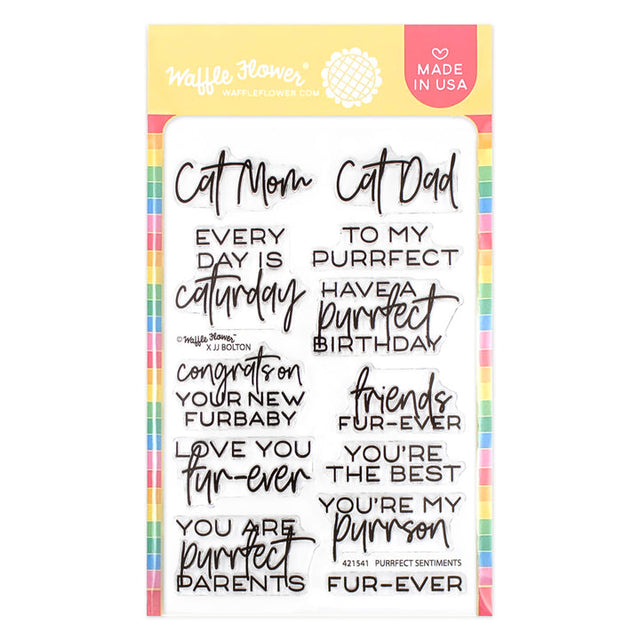 Waffle Flower®
WAFFLEFLOWER.COM
MADE
IN USA
Cat Mom
Cat Dad
EVERY
DAY IS
caturday
TO MY
PURRFECT
HAVE A
purrfect
BIRTHDAY
© Waffle Flower®
X JJ BOLTON
congrats on
YOUR NEW
FURBABY
friends
FUR-EVER
LOVE YOU
fur-ever
YOU'RE
THE BEST
YOU ARE
purrfect
PARENTS
YOU'RE MY
purrson
421541 PURRFECT SENTIMENTS
FUR-EVER